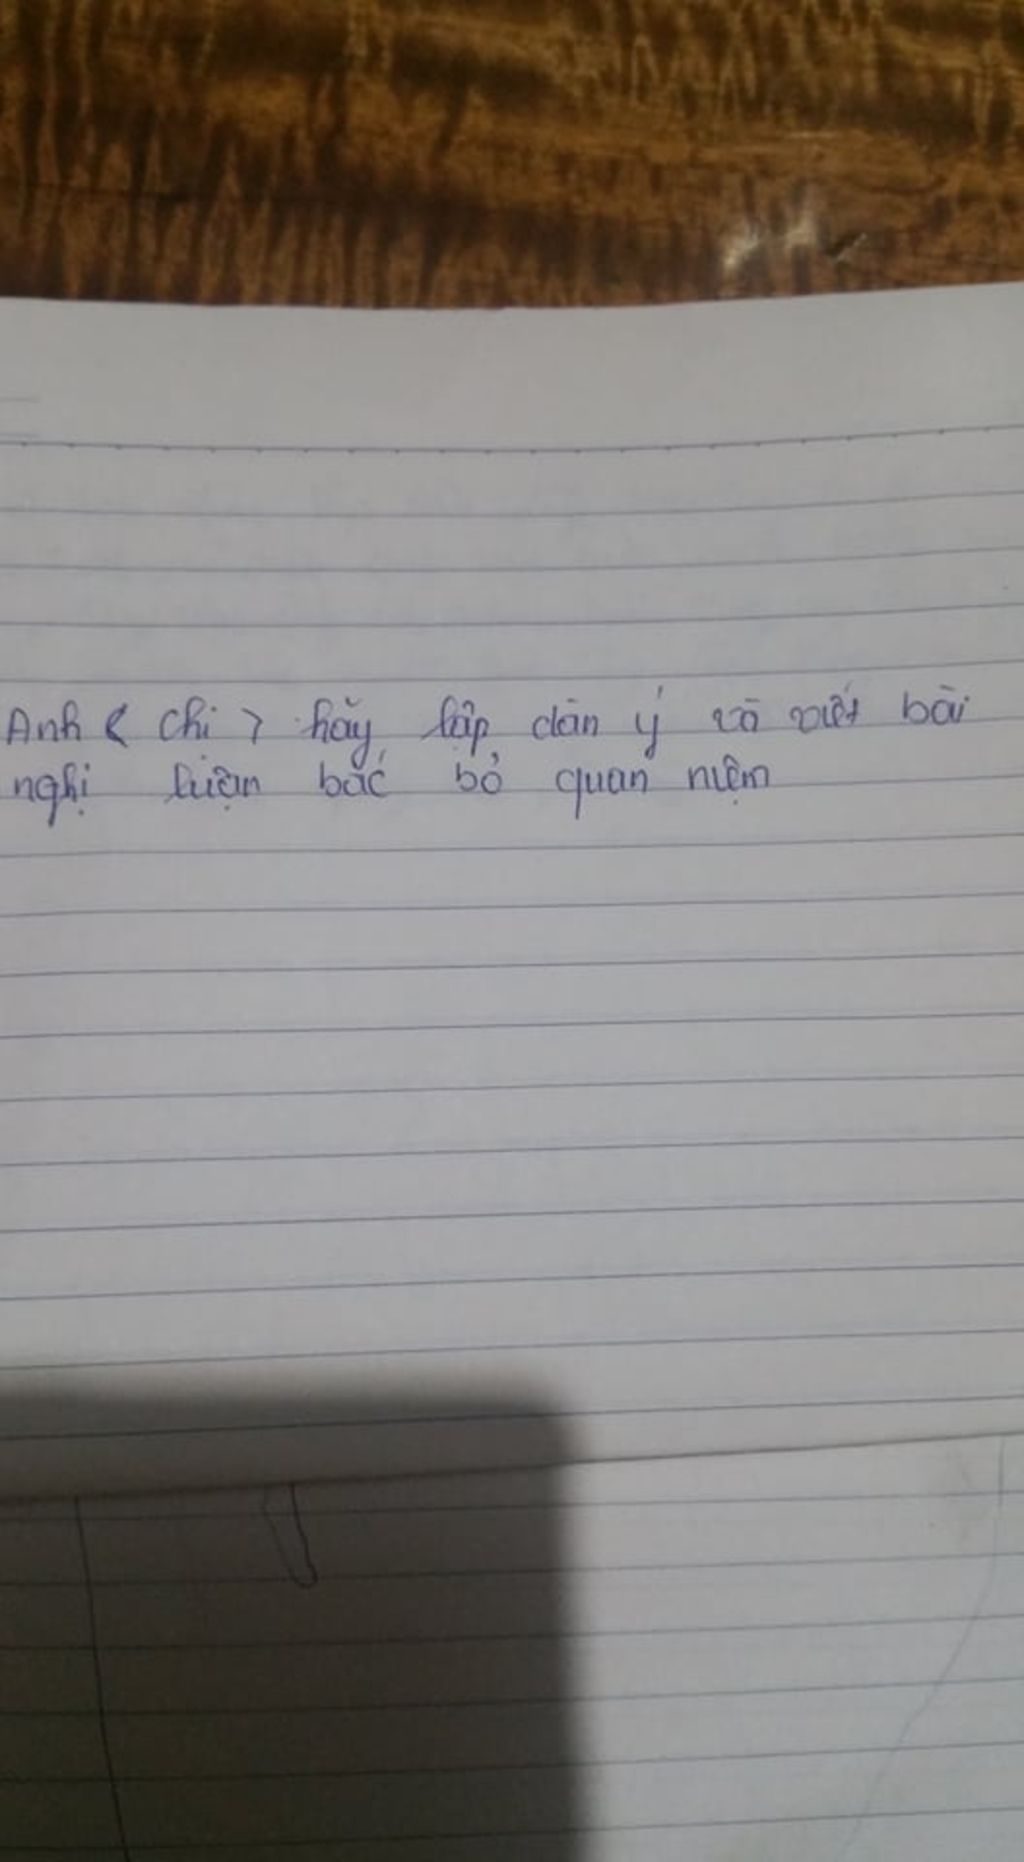 Anh < chị > hãy lập dàn ý và viết bài
nghị luận bác bỏ quan niệm